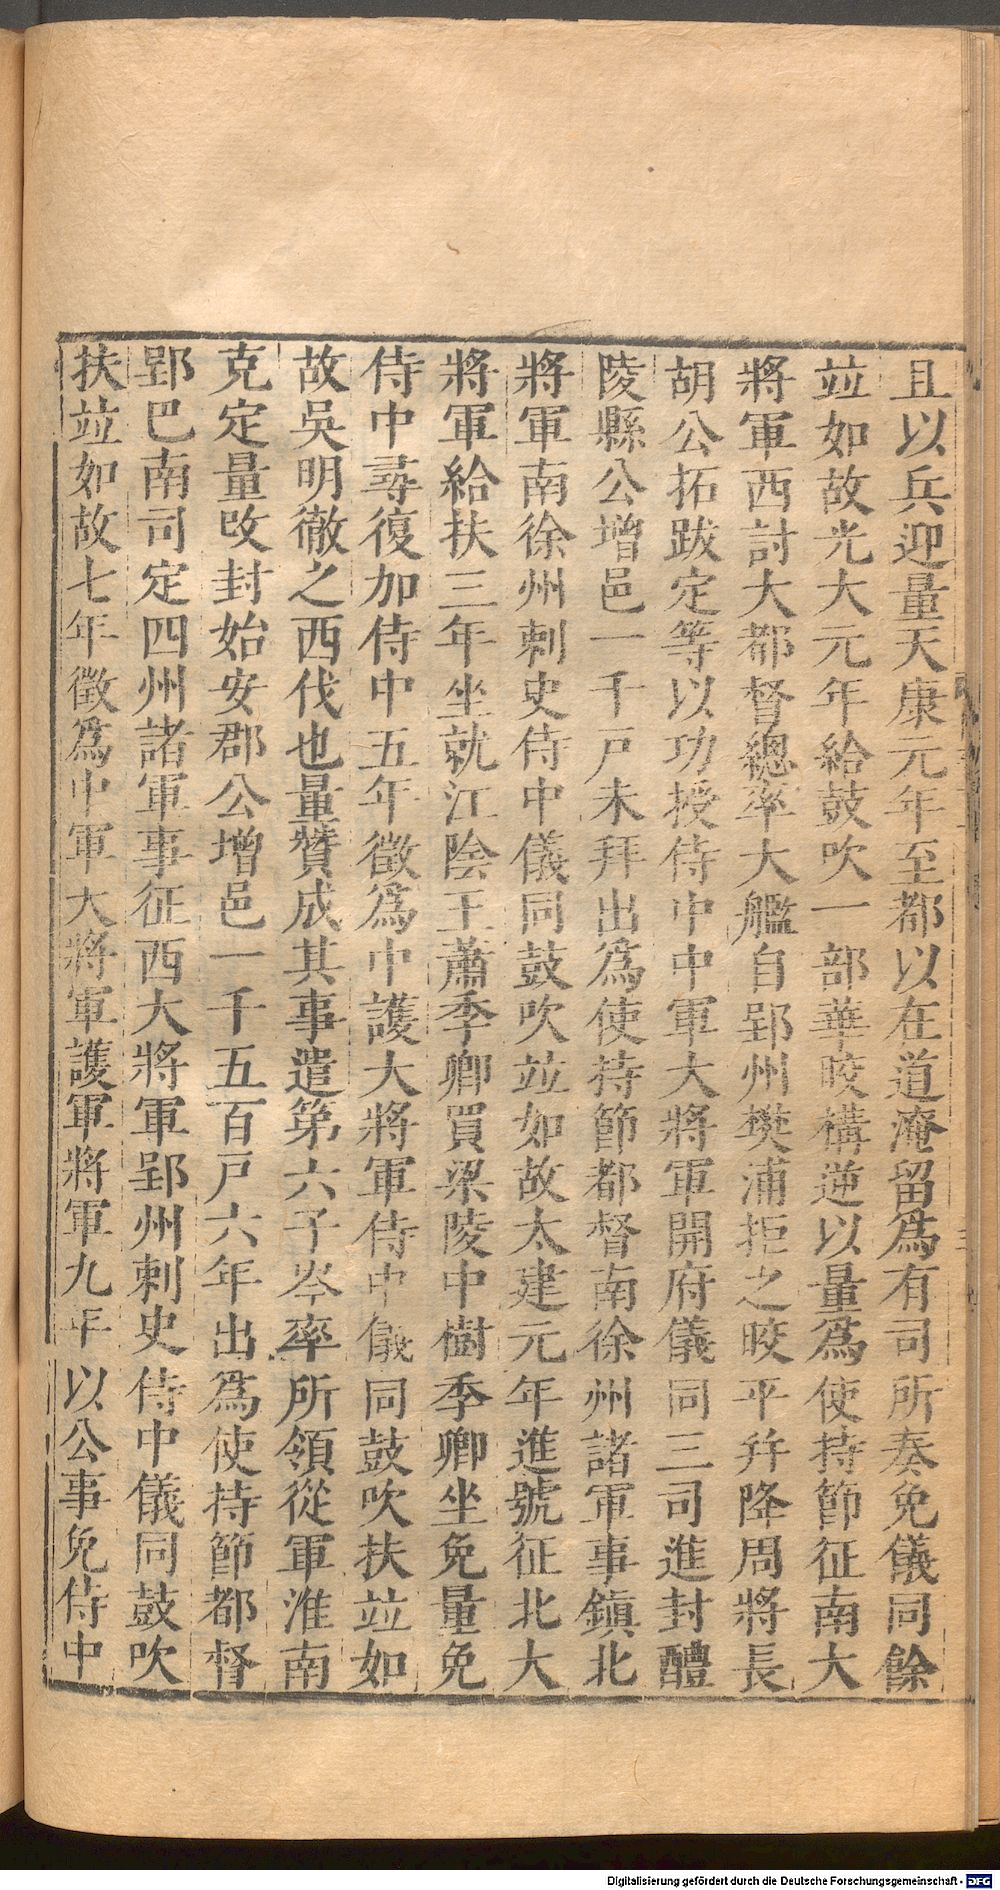 且以兵迎量天康元年至都以在道淹留爲有司所奏免儀同餘
竝如故光大元年給鼓吹一部華皎構逆以量爲使持節征南大
將軍西討大都督總率大艦自郢州樊浦拒之皎平并降周將長
胡公拓跋定等以功授侍中中軍大將軍開府儀同三司進封醴
陵縣公增邑一千戸未拜出爲使持節都督南徐州諸軍事鎭北
將軍南徐州刺史侍中儀同鼓吹竝如故太建元年進號征北大
將軍給扶三年坐就江陰王蕭季卿買梁陵中樹季卿坐免量免
侍中尋復加侍中五年徵爲中護大將軍侍中儀同鼓吹扶竝如
故吳明徹之西伐也量贊成其事遣第六子岑率所領從軍淮南
克定量改封始安郡公增邑一千五百戸六年出爲使持節都督
郢巴南司定四州諸軍事征西大將軍郢州刺史侍中儀同鼓吹
扶竝如故七年徵爲中軍大將軍護軍將軍九年以公事免侍中
Digitalisierung gefördert durch die Deutsche Forschungsgemeinschaft - DFG